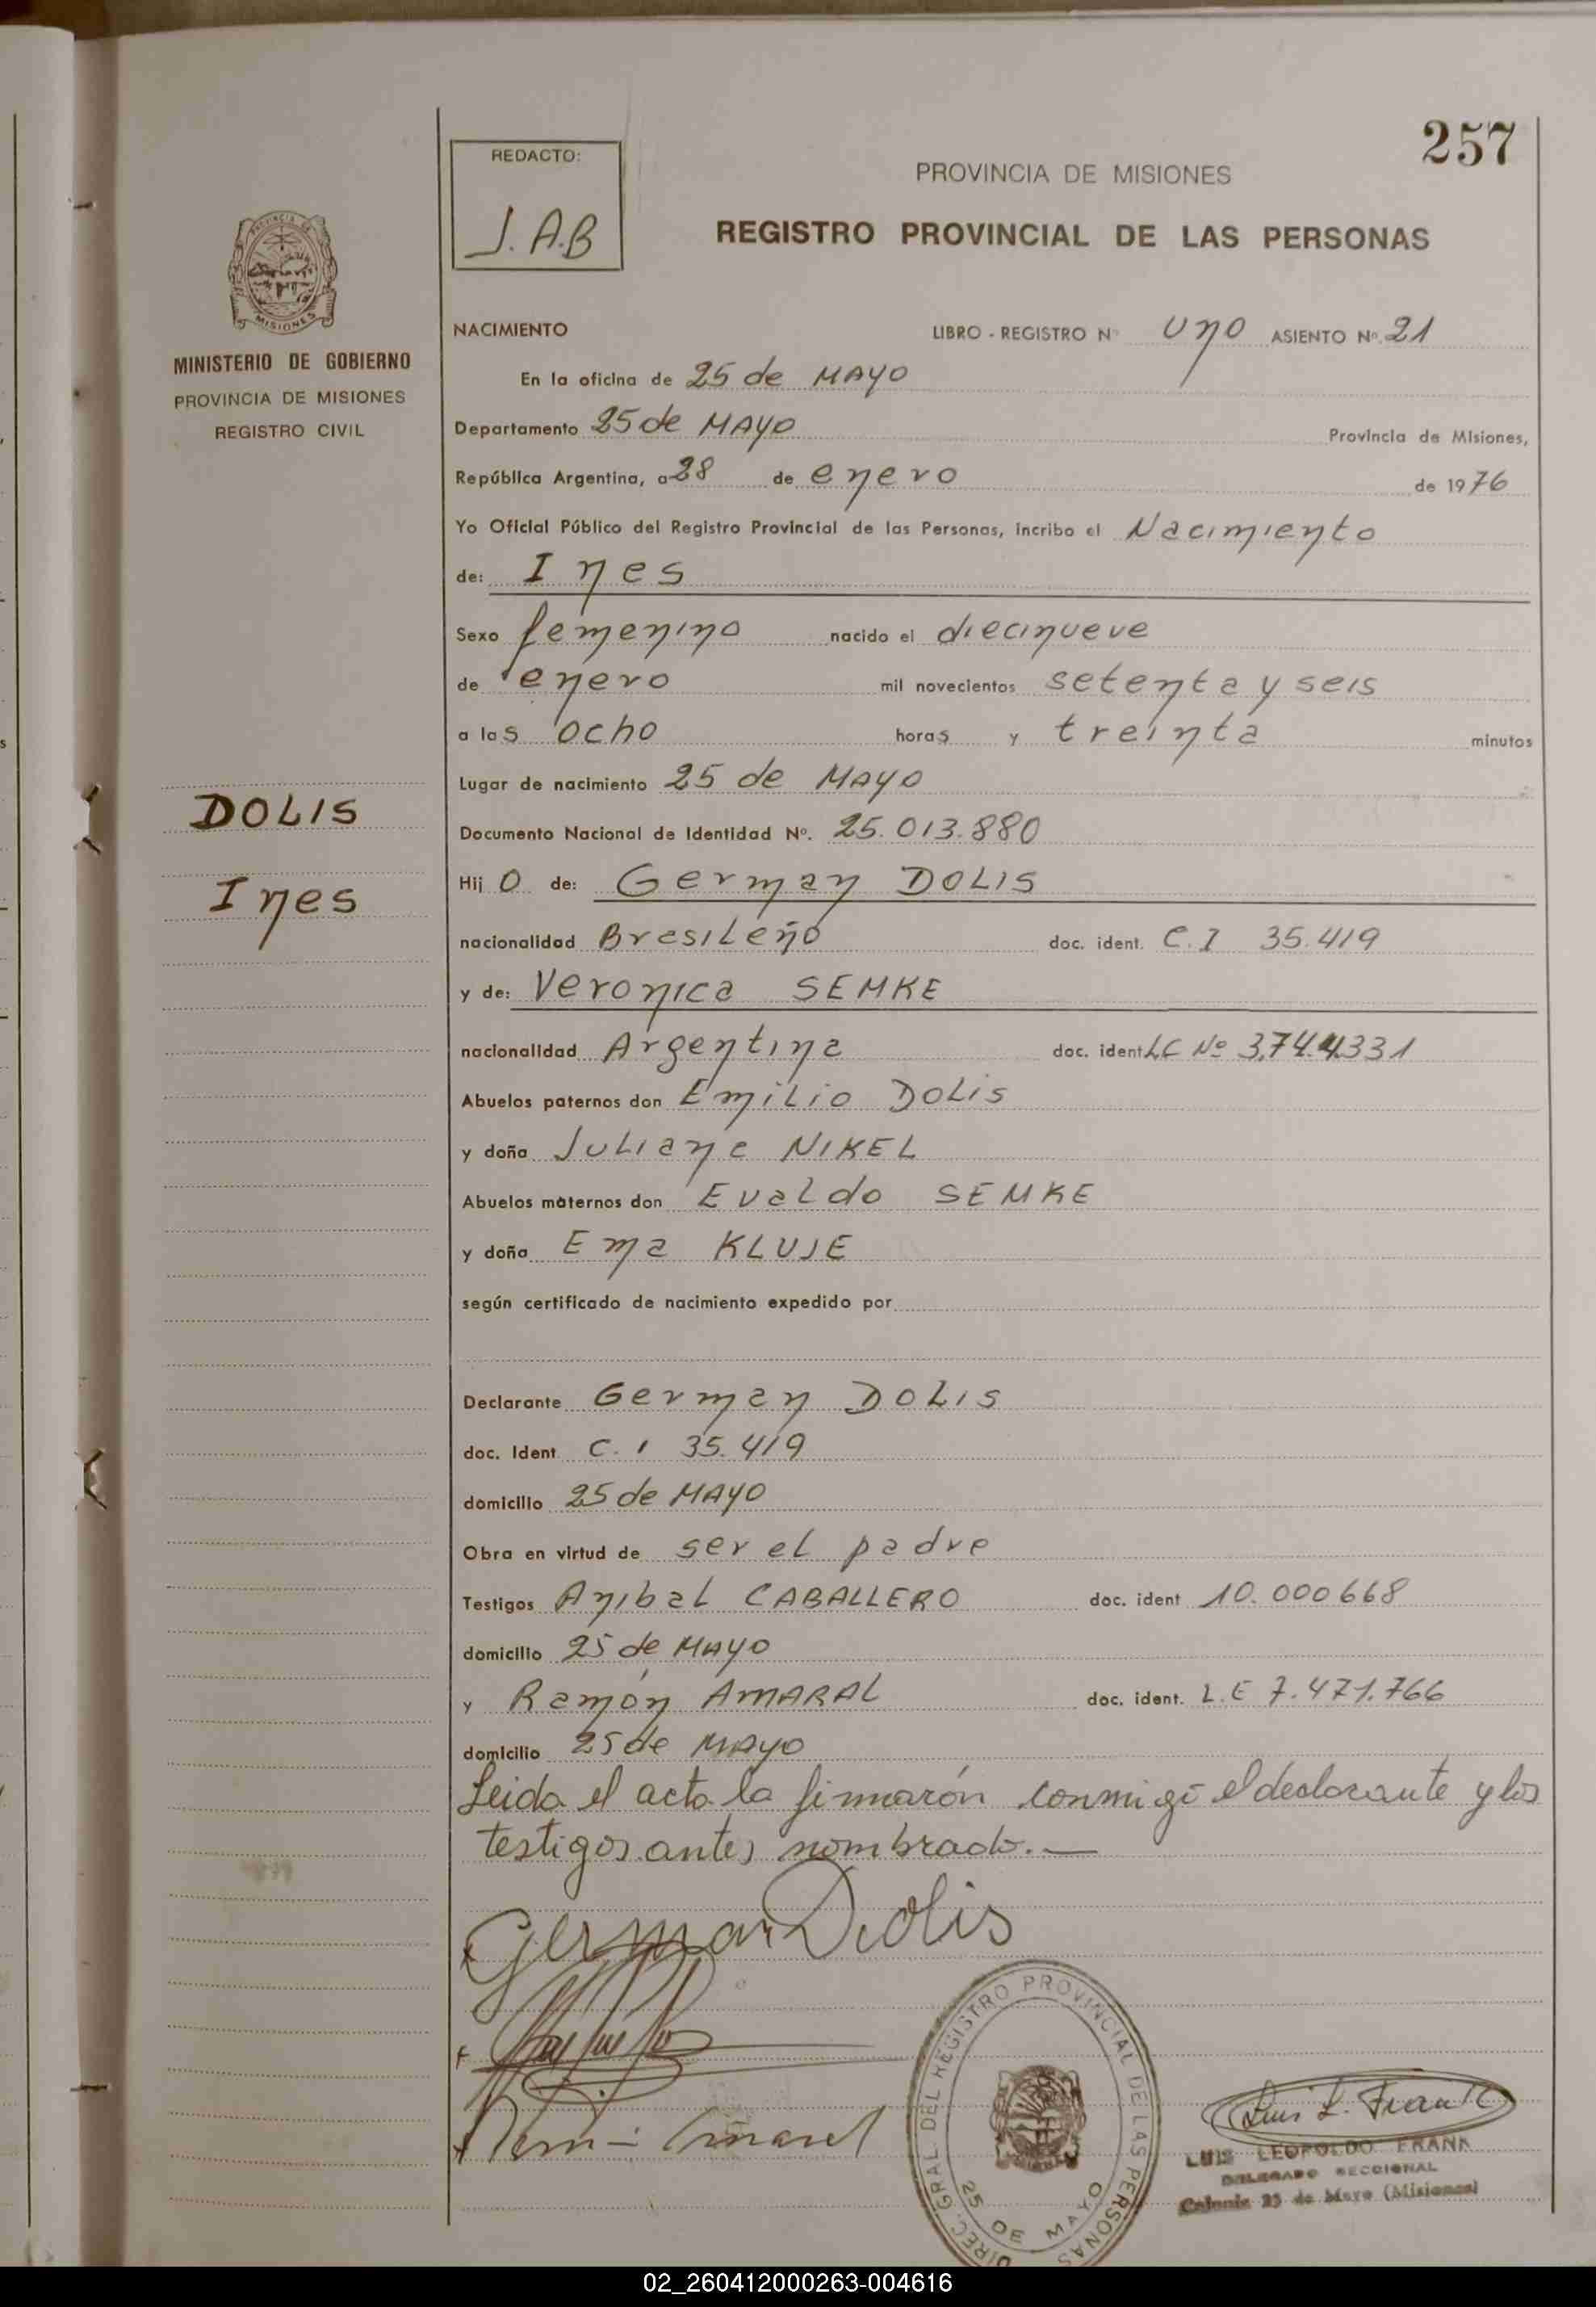 257
REDACTO:
J.A.B
PROVINCIA DE MISIONES
REGISTRO PROVINCIAL DE LAS PERSONAS
PROVINCIA DE
MISIONES
MINISTERIO DE GOBIERNO
PROVINCIA DE MISIONES
REGISTRO CIVIL
DOLIS
Ines
NACIMIENTO LIBRO - REGISTRO Nº Uno ASIENTO Nº 21
En la oficina de 25 de MAYO
Departamento 25 de MAYO Provincia de Misiones,
República Argentina, a 28 de enero de 1976
Yo Oficial Público del Registro Provincial de las Personas, incribo el Nacimiento
de: Ines
Sexo femenino nacido el diecinueve
de enero mil novecientos setenta y seis
a las ocho horas y treinta minutos
Lugar de nacimiento 25 de MAYO
Documento Nacional de Identidad Nº. 25.013.880
Hij O de: German DOLIS
nacionalidad Bresileño doc. ident. C.I 35.419
y de: Veronica SEMKE
nacionalidad Argentina doc. ident LC Nº 3.744.331
Abuelos paternos don Emilio DOLIS
y doña Juliana NIKEL
Abuelos maternos don Evaldo SEMKE
y doña Ema KLUJE
según certificado de nacimiento expedido por
Declarante German DOLIS
doc. Ident C. I 35.419
domicilio 25 de MAYO
Obra en virtud de ser el padre
Testigos Anibal CABALLERO doc. ident 10.000668
domicilio 25 de MAYO
y Ramón AMARAL doc. ident. L.E 7.471.766
domicilio 25 de MAYO
Leida el acta la firmarón conmigo el declarante y los
testigos antes nombrado.—
German Dolis
DIREC. GRAL. DEL REGISTRO PROVINCIAL DE LAS PERSONAS
25 DE MAYO
Luis L. Frank
LUIS LEOPOLDO FRANK
DELEGADO SECCIONAL
Colonia 25 de Mayo (Misiones)
02_260412000263-004616